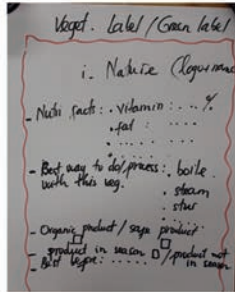 Veget. Label / Green label
i. Nature (logo + name
- Nutri facts: . vitamin : .... %
. fat : ....
. ......
. ......
- Best way to do/process : . boile
with this veg. . steam
. stur
. ......
- Organic product / safe product
- product in season / product not in season
- Best before : ......